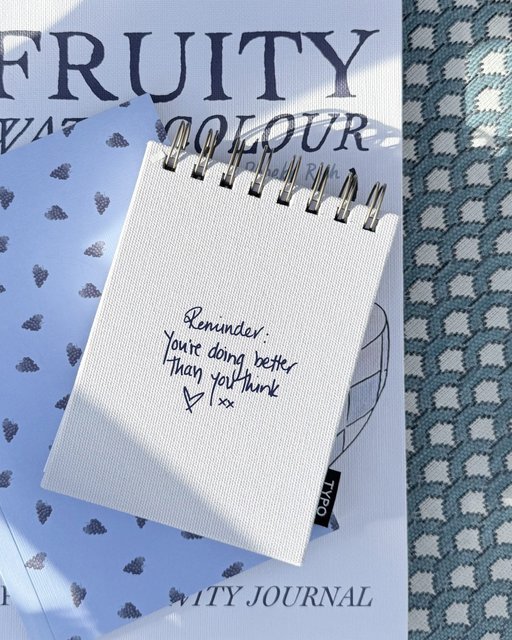 FRUITY
COLOUR
Reminder:
You're doing better
than you think
xx
TYPO
JOURNAL